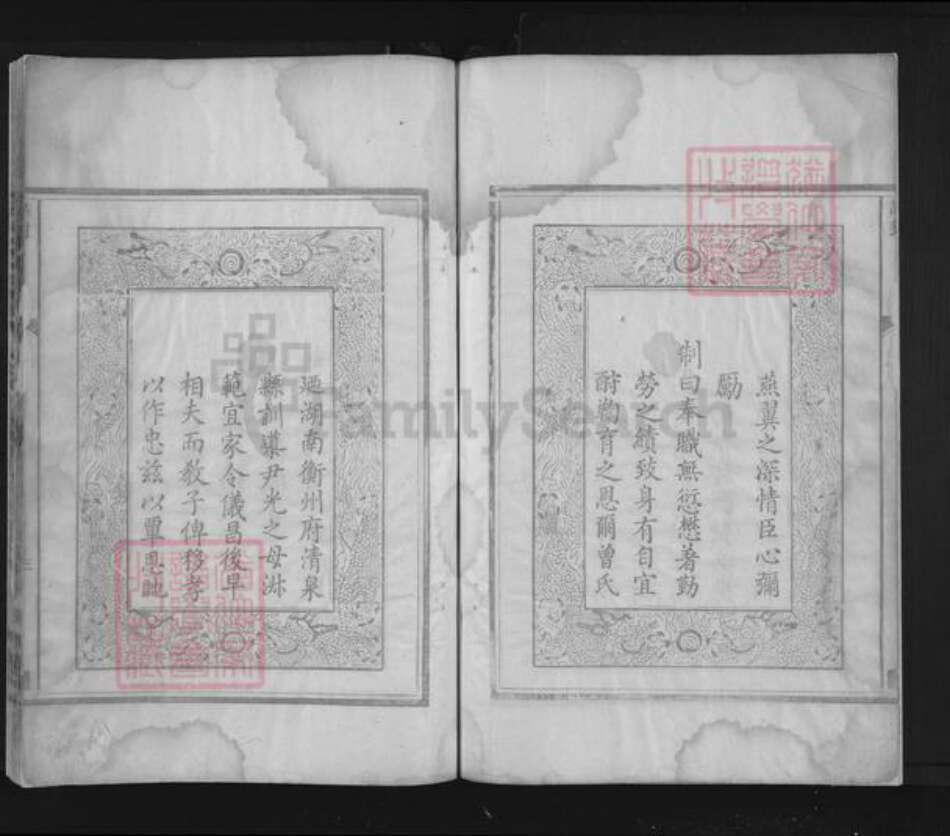 燕翼之深情臣心彌
勵
制曰奉職無愆懋著勤
勞之績致身有自宜
酬鞠育之恩爾曾氏
廼湖南衡州府清泉
縣訓導尹光之母淑
範宜家令儀昌後早
相夫而教子俾移孝
以作忠兹以覃恩貤
FamilySearch